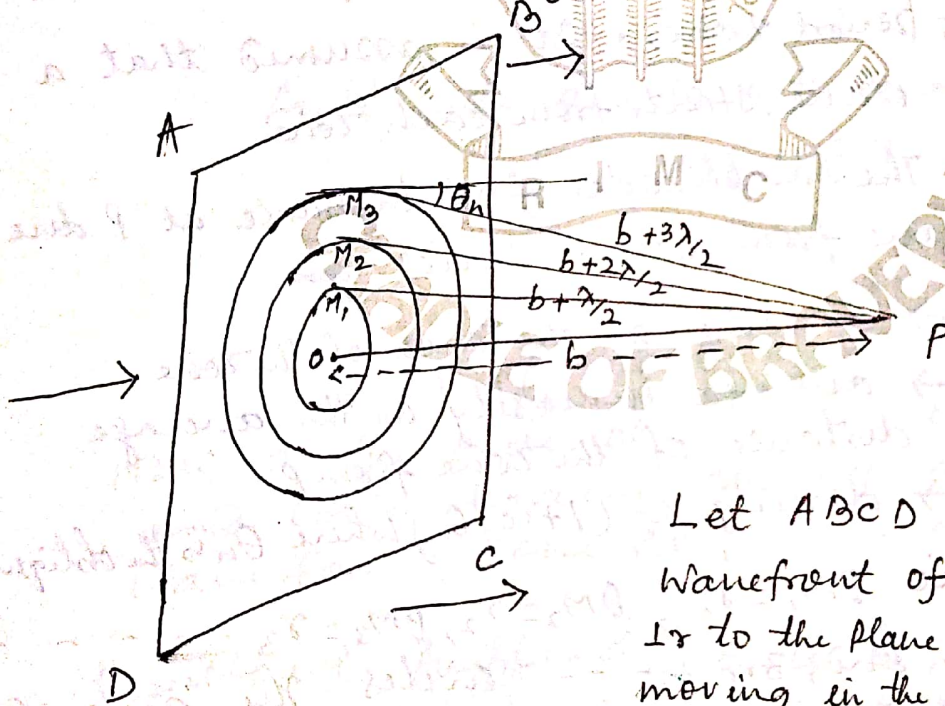 B
A
R I M C
M3
θn
b+3λ/2
M2
b+2λ/2
M1
b+λ/2
O
b
P
OF BRAVER
Let ABCD
Wavefront of
⊥r to the Plane
moving in the
C
D